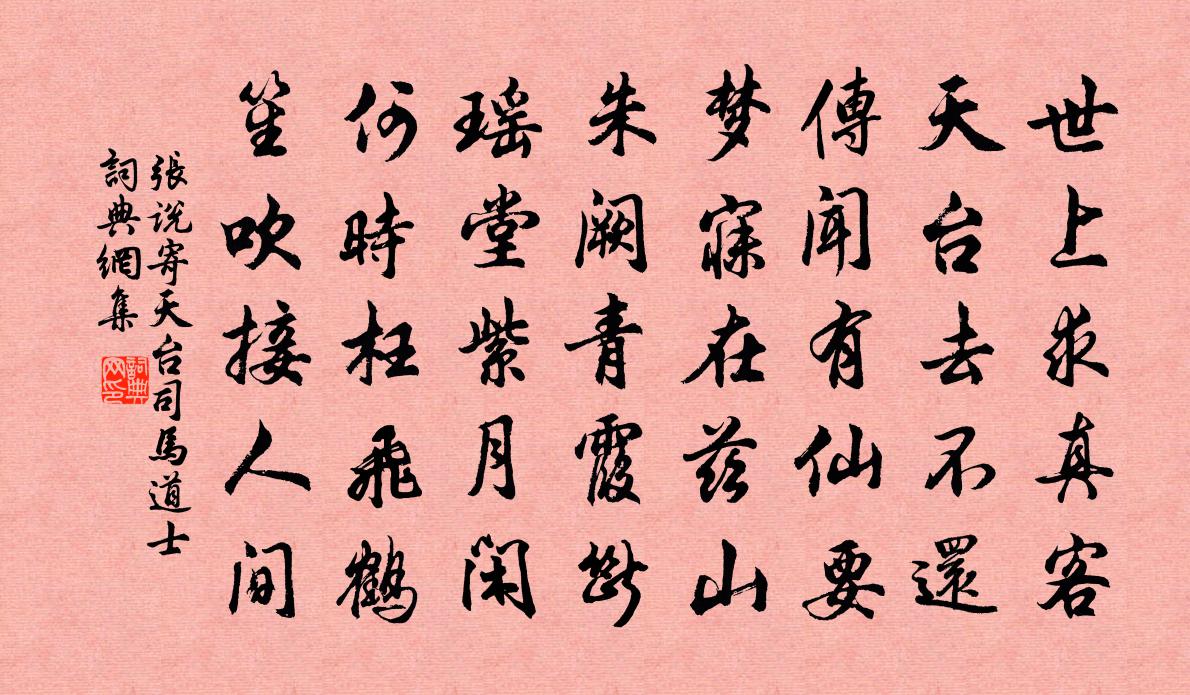 世上求真客
天台去不還
傳闻有仙要
梦寐在茲山
朱阙青霞断
瑶堂紫月闲
何時枉飛鶴
笙吹接人间
張说寄天台司馬道士
詞典網集
詞典
网印